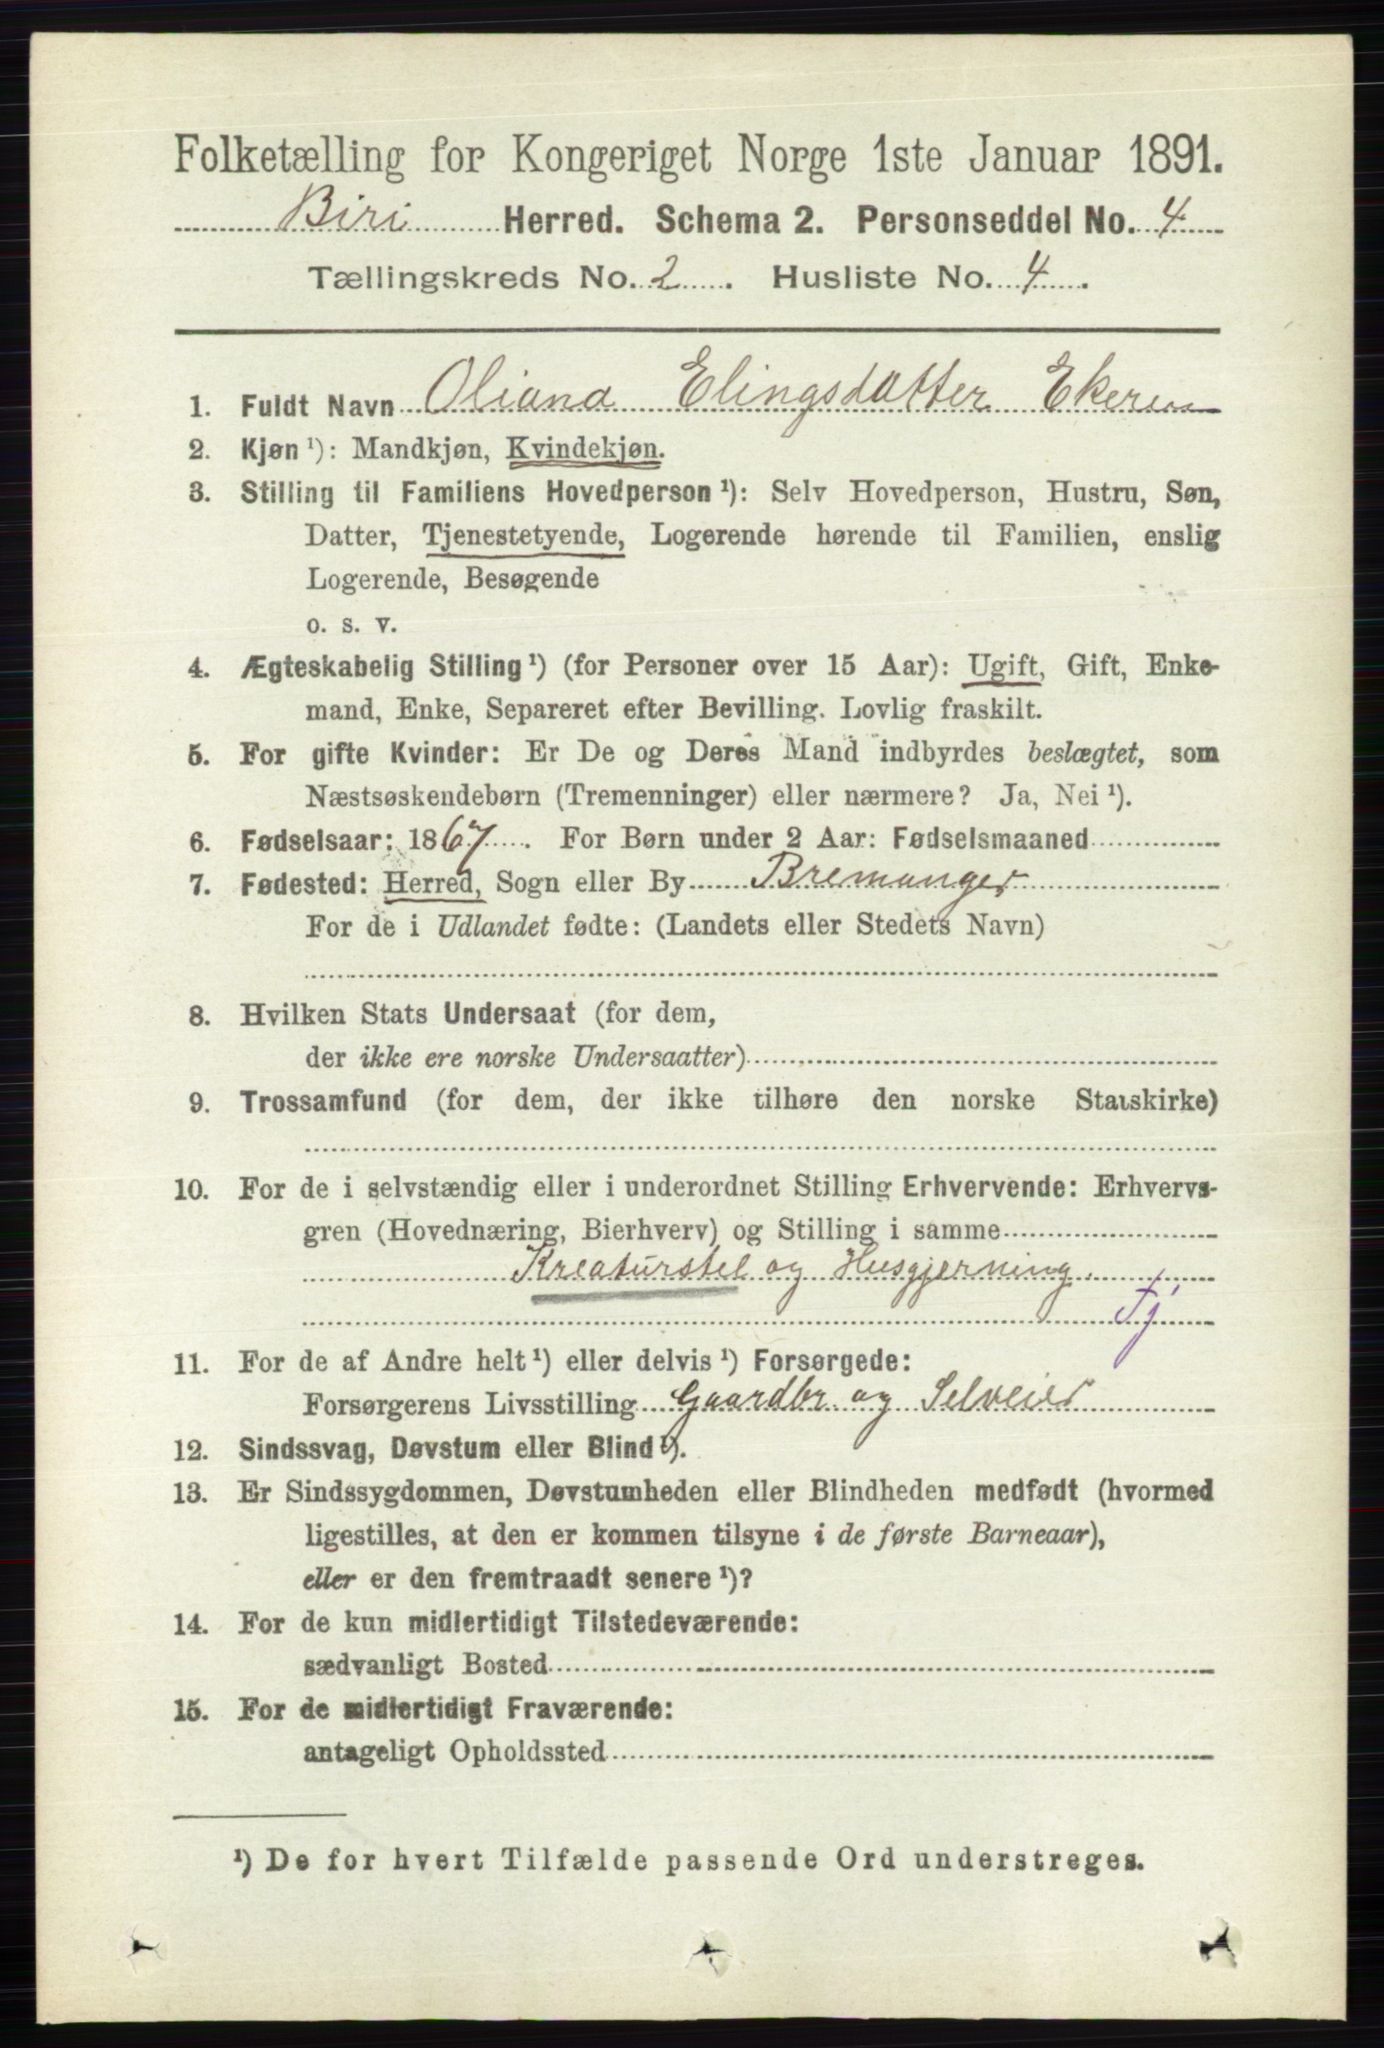 Folketælling for Kongeriget Norge 1ste Januar 1891.
Biri Herred. Schema 2. Personseddel No. 4
Tællingskreds No. 2. Husliste No. 4.
1. Fuldt Navn Oliana Elingsdatter Ekeren
2. Kjøn ¹): Mandkjøn, Kvindekjøn.
3. Stilling til Familiens Hovedperson ¹): Selv Hovedperson, Hustru, Søn,
Datter, Tjenestetyende, Logerende hørende til Familien, enslig
Logerende, Besøgende
o. s. v.
4. Ægteskabelig Stilling ¹) (for Personer over 15 Aar): Ugift, Gift, Enke-
mand, Enke, Separeret efter Bevilling. Lovlig fraskilt.
5. For gifte Kvinder: Er De og Deres Mand indbyrdes beslægtet, som
Næstsøskendebørn (Tremenninger) eller nærmere? Ja, Nei ¹).
6. Fødselsaar: 1867. For Børn under 2 Aar: Fødselsmaaned
7. Fødested: Herred, Sogn eller By Bremanger
For de i Udlandet fødte: (Landets eller Stedets Navn)
8. Hvilken Stats Undersaat (for dem,
der ikke ere norske Undersaatter)
9. Trossamfund (for dem, der ikke tilhøre den norske Statskirke)
10. For de i selvstændig eller i underordnet Stilling Erhvervende: Erhvervs-
gren (Hovednæring, Bierhverv) og Stilling i samme
Kreaturstel og Husgjerning.
Tj
11. For de af Andre helt ¹) eller delvis ¹) Forsørgede:
Forsørgerens Livsstilling Gaardbr. og Selveier
12. Sindssvag, Døvstum eller Blind ¹).
13. Er Sindssygdommen, Døvstumheden eller Blindheden medfødt (hvormed
ligestilles, at den er kommen tilsyne i de første Barneaar),
eller er den fremtraadt senere ¹)?
14. For de kun midlertidigt Tilstedeværende:
sædvanligt Bosted
15. For de midlertidigt Fraværende:
antageligt Opholdssted
¹) De for hvert Tilfælde passende Ord understreges.